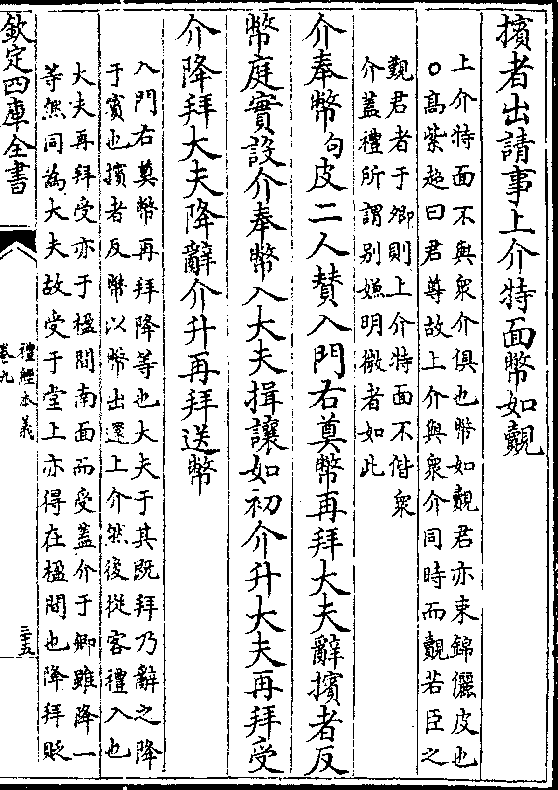 擯者出請事上介特面幣如覿
上介特面不與衆介俱也幣如覿君亦束錦儷皮也
○高紫超曰君尊故上介與衆介同時而覿若臣之
覿君者于卿則上介特面不偕衆
介蓋禮所謂别嫌明微者如此
介奉幣句皮二人贊入門右奠幣再拜大夫辭擯者反
幣庭實設介奉幣入大夫揖讓如初介升大夫再拜受
介降拜大夫降辭介升再拜送幣
入門右奠幣再拜降等也大夫于其既拜乃辭之降
于賓也擯者反幣以幣出還上介然後從客禮入也
大夫再拜受亦于楹間南面而受蓋介于卿雖降一
等然同為大夫故受于堂上亦得在楹間也降拜貶
欽定四庫全書
禮經本義
卷九
三十五